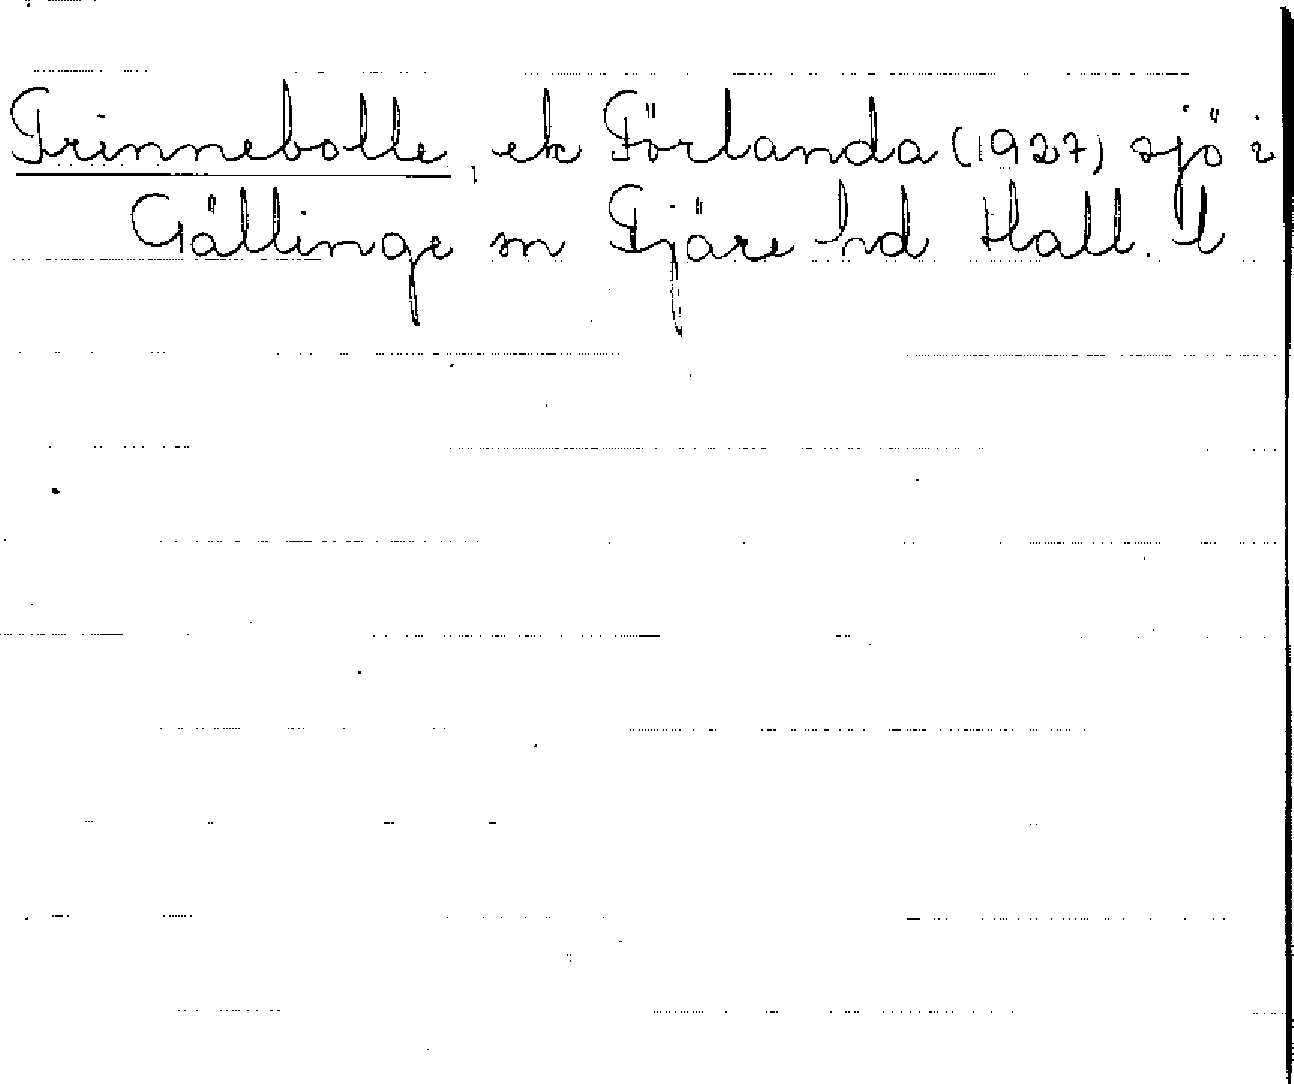 Trinnebolle, ek Förlanda (1927) sjö i
Gällinge sn Fjäre hd Hall. l